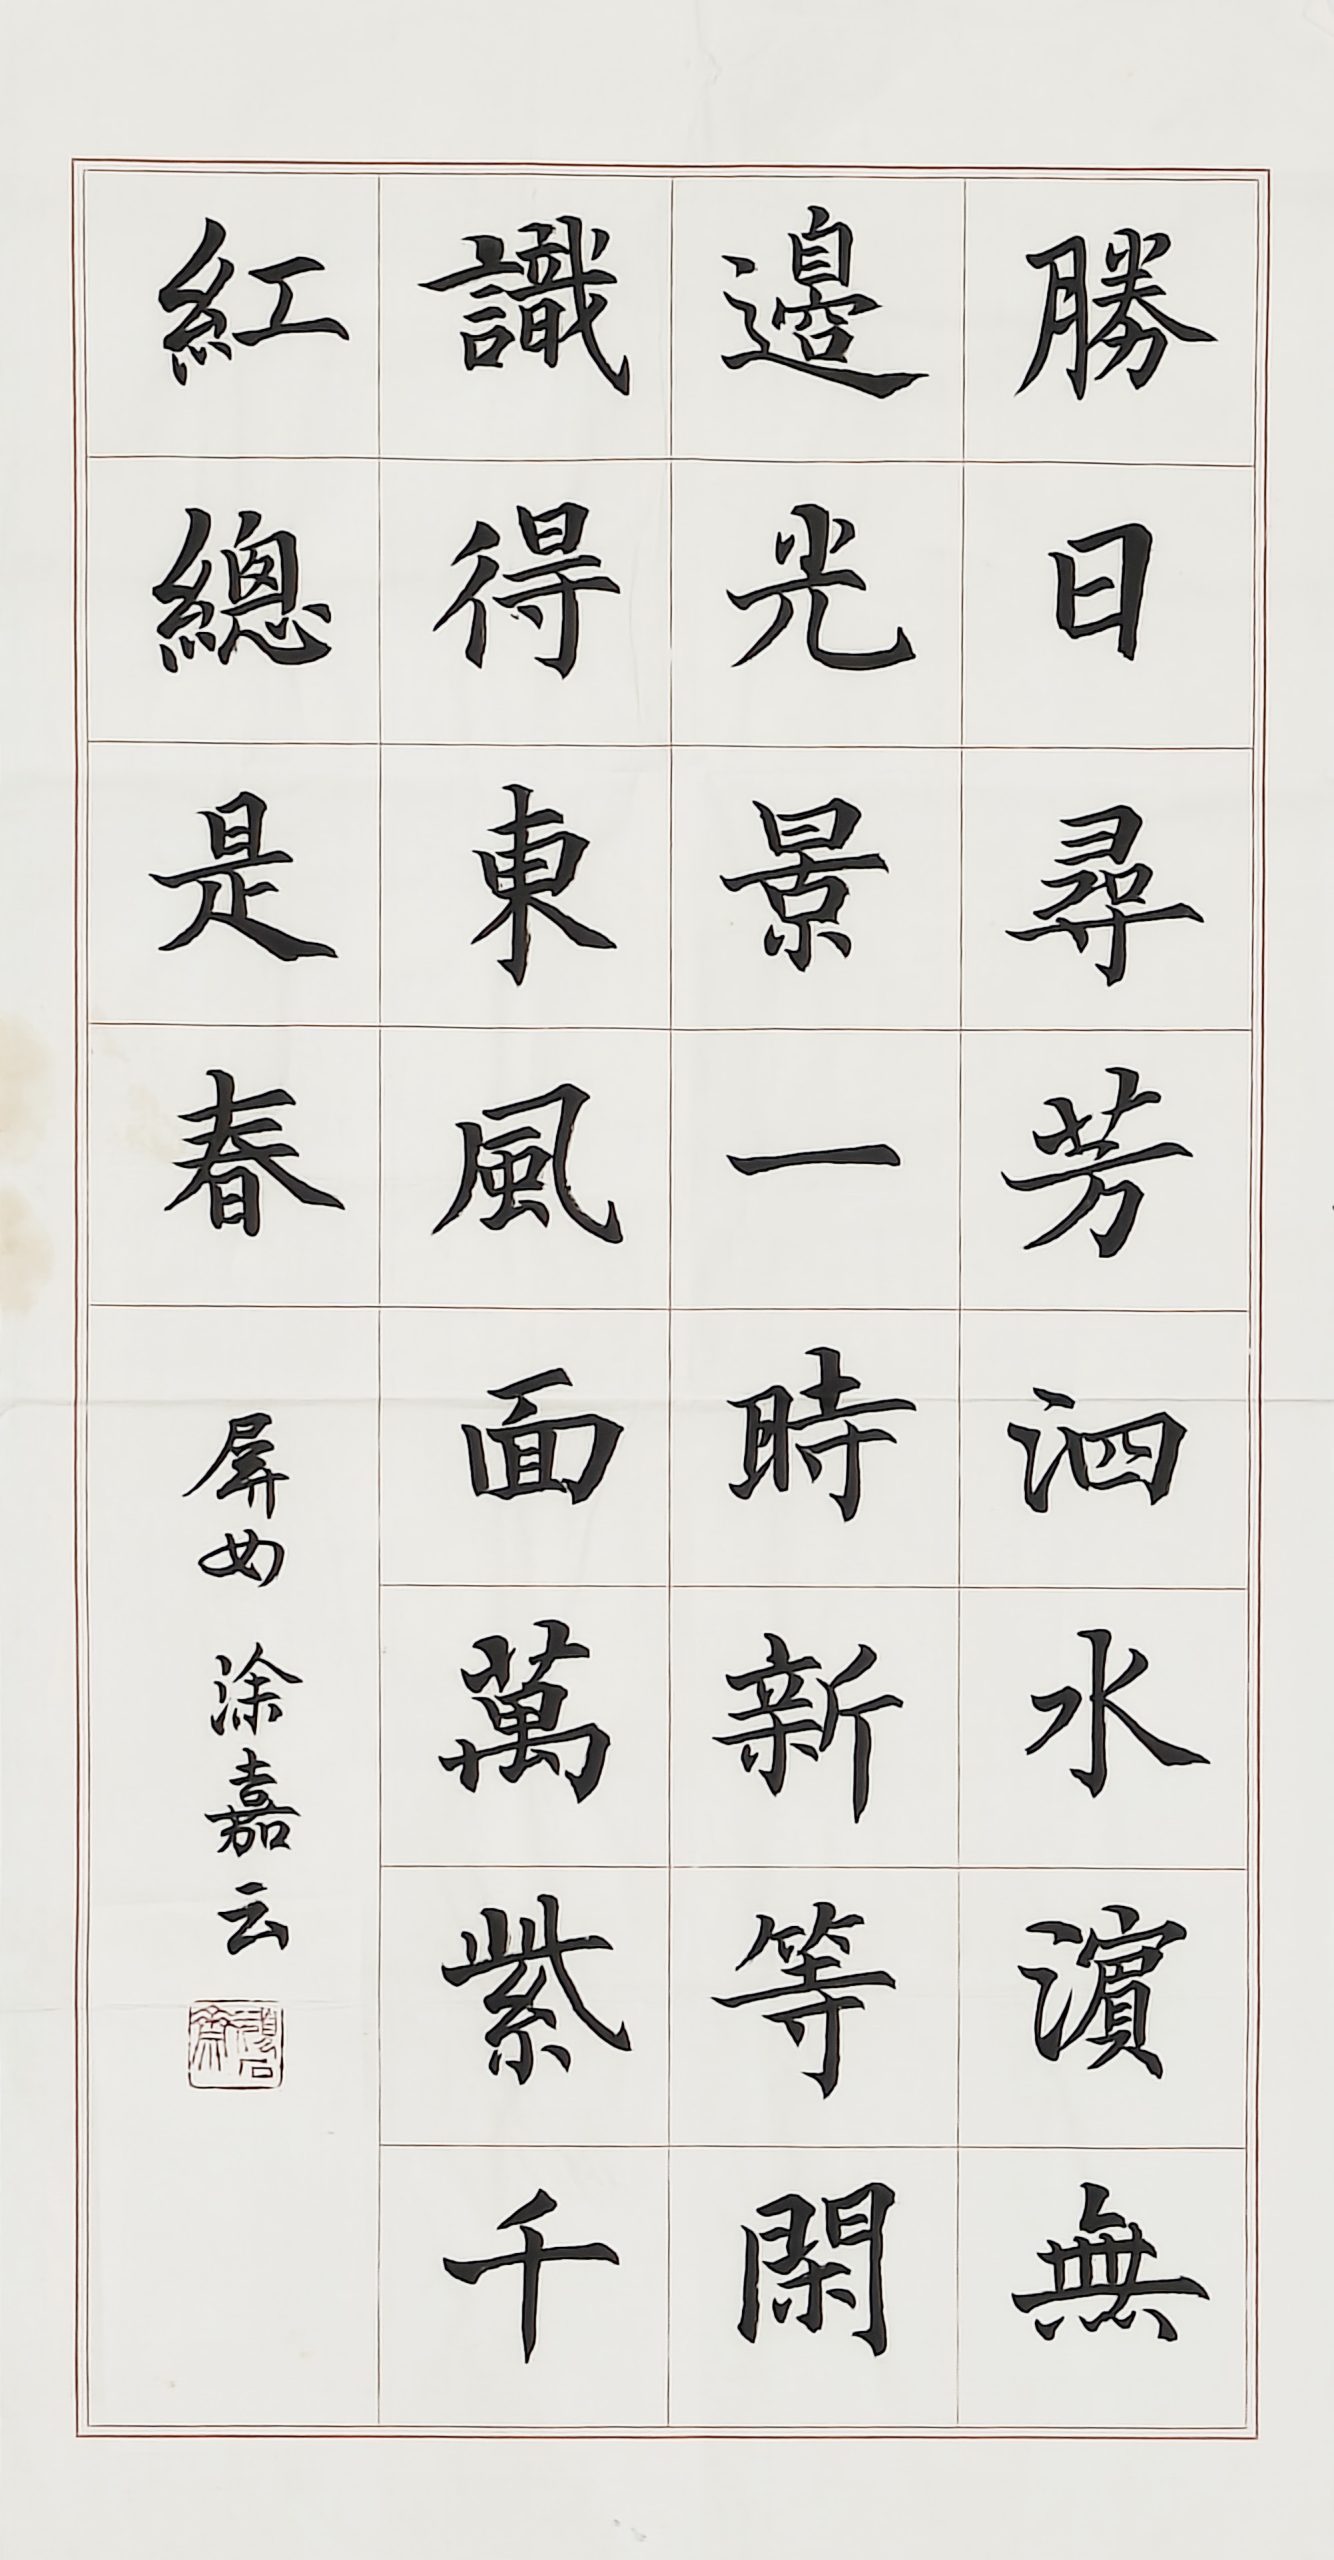 勝日尋芳泗水濵無
邉光景一時新等閑
識得東風面萬紫千
紅總是春
屏女 涂嘉云